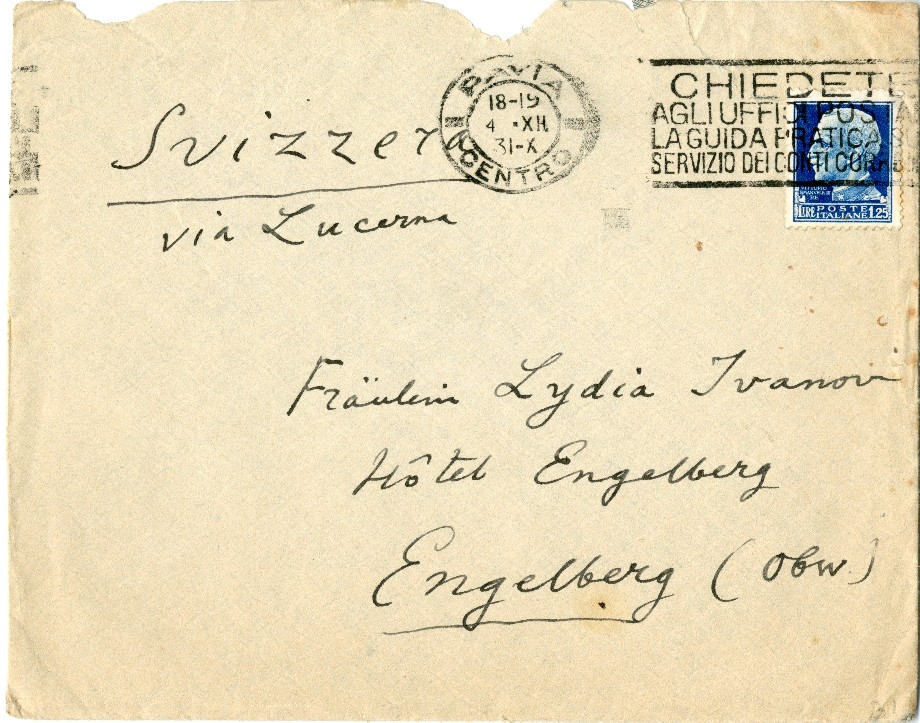 PAVIA
18-19
4 · XII
31-X
CENTRO
CHIEDETE
AGLI UFFICI POSTA
LA GUIDA PRATICA
SERVIZIO DEI CONTI CORR
VITTORIO
EMANUELE III
RE
LIRE POSTE ITALIANE 1.25
Svizzera
via Lucerna
Fräulein Lydia Ivanov
Hôtel Engelberg
Engelberg (Obw.)